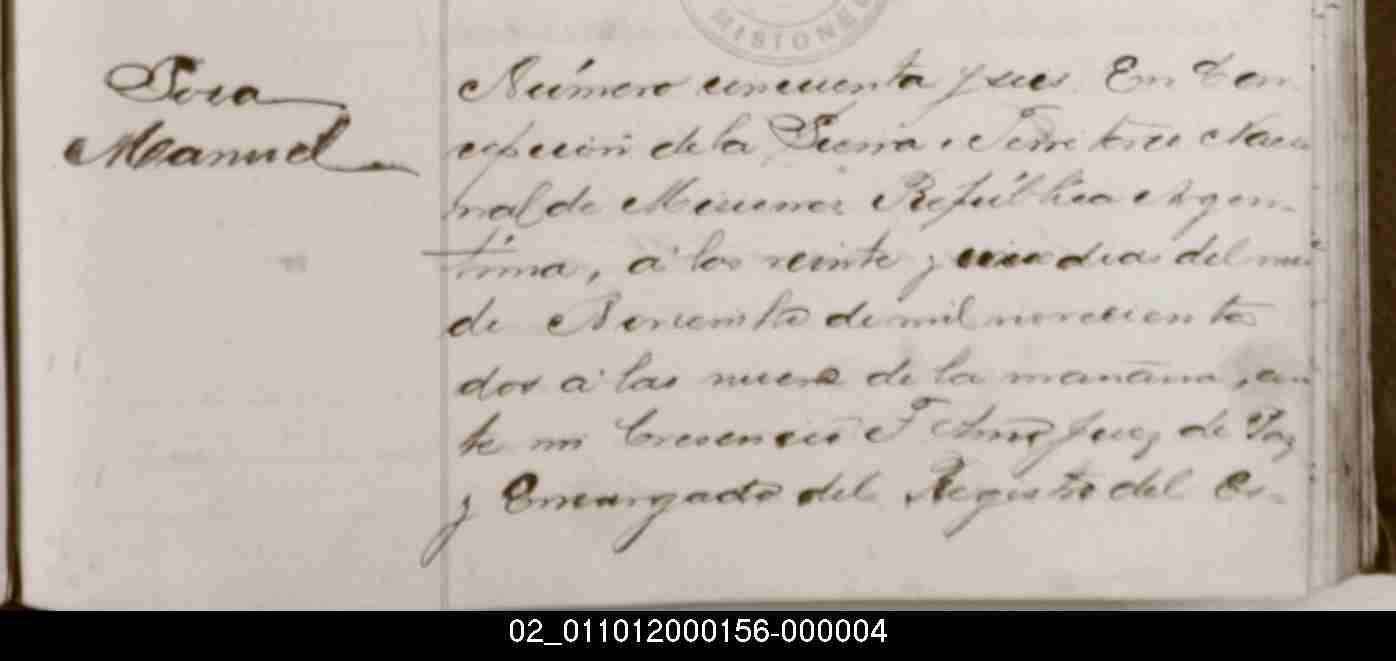 MISIONES
Sosa
Manuel
Número cincuenta y seis. En Con
cepción de la Sierra, Territorio Nacio
nal de Misiones República Argen-
tina, á los veinte y dias del mes
de Noviembre de mil novecientos
dos á las nueve de la mañana, an
te mi Crecencio F Juez de Paz
y Encargado del Registro del Es-
02_011012000156-000004